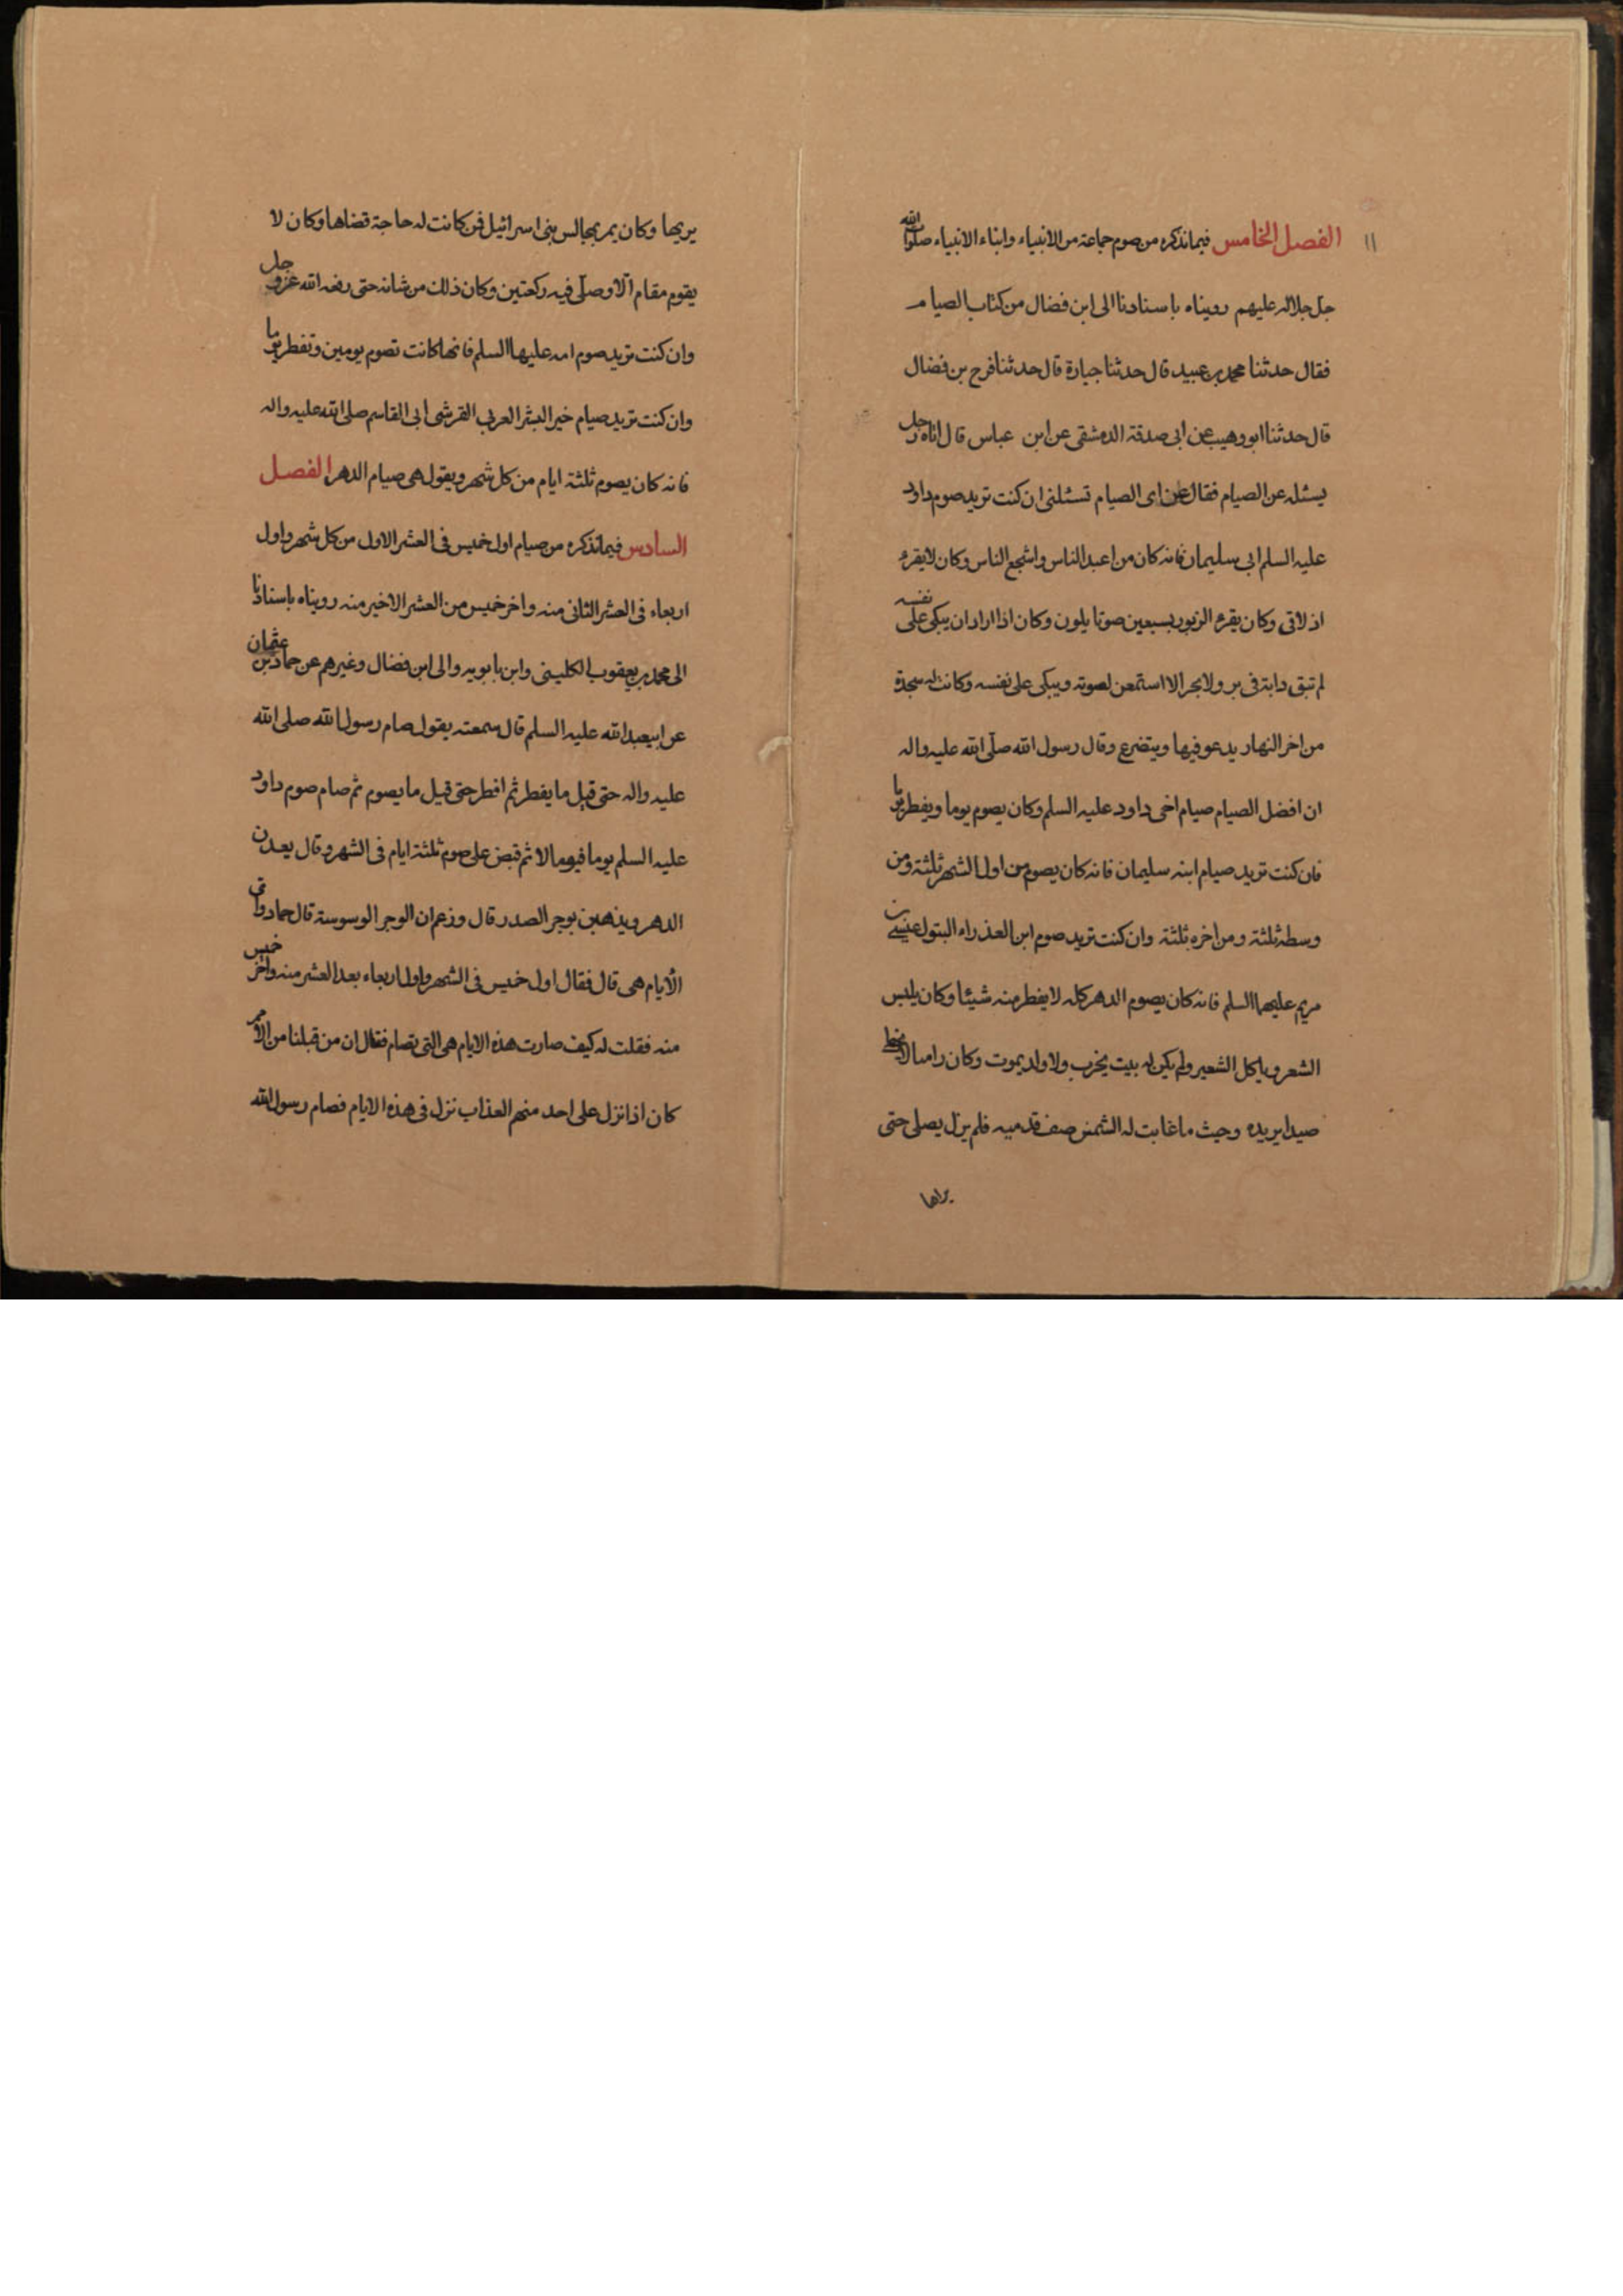 ١١ الفصل الخامس فيما نذكره من صوم جماعة من الانبياء وابناء الانبياء صلوات الله
جل جلاله عليهم رويناه باسنادنا الى ابن فضال من كتاب الصيام
فقال حدثنا محمد بن عبيد قال حدثنا جبارة قال حدثنا فرج بن فضال
قال حدثنا ابو وهيب عن ابى صدقة الدمشقى عن ابن عباس قال اتاه رجل
يسئله عن الصيام فقال عن اى الصيام تسئلنى ان كنت تريد صوم داود
عليه السلم ابى سليمان فانه كان من اعبد الناس واشجع الناس وكان لا يفر
اذ لاقى وكان يقرء الزبور بسبعين صوتا يلون وكان اذا اراد ان يبكى على نفسه
لم تبق دابة فى بر ولا بحر الا استمعن لصوته ويبكى على نفسه وكانت له سجدة
من اخر النهار يدعو فيها ويتضرع وقال رسول الله صلى الله عليه واله
ان افضل الصيام صيام اخى داود عليه السلم وكان يصوم يوما ويفطر يوما
فان كنت تريد صيام ابنه سليمان فانه كان يصوم من اول الشهر ثلثة ومن
وسطه ثلثة ومن اخره ثلثة وان كنت تريد صوم ابن العذراء البتول عيسى بن
مريم عليهما السلم فانه كان يصوم الدهر كله لا يفطر منه شيئا وكان يلبس
الشعر وياكل الشعير ولم يكن له بيت يخرب ولا ولد يموت وكان راميا لا يخطى
صيدا يريده وحيث ما غابت له الشمس صف قدميه فلم يزل يصلى حتى
يراها
يريها وكان يمر بمجالس بنى اسرائيل فمن كانت له حاجة قضاها وكان لا
يقوم مقام الا وصلى فيه ركعتين وكان ذلك من شانه حتى رفعه الله عز وجل
وان كنت تريد صوم امه عليها السلم فانها كانت تصوم يومين وتفطر يوما
وان كنت تريد صيام خير البشر العربى القرشى ابى القاسم صلى الله عليه واله
فانه كان يصوم ثلثة ايام من كل شهر ويقول هى صيام الدهر الفصل
السادس فيما نذكره من صيام اول خميس فى العشر الاول من كل شهر واول
اربعاء فى العشر الثانى منه واخر خميس من العشر الاخير منه رويناه باسنادنا
الى محمد بن يعقوب الكلينى وابن بابويه والى ابن فضال وغيرهم عن حماد بن عثمان
عن ابيعبد الله عليه السلم قال سمعته يقول صام رسول الله صلى الله
عليه واله حتى قيل ما يفطر ثم افطر حتى قيل ما يصوم ثم صام صوم داود
عليه السلم يوما فيوما لا ثم قبض على صوم ثلثة ايام فى الشهر وقال يعدلن
الدهر ويذهبن بوحر الصدر قال وزعم ان الوحر الوسوسة قال حماد واى
الايام هى قال فقال اول خميس فى الشهر واول اربعاء بعد العشر منه واخر خميس
منه فقلت له كيف صارت هذه الايام هى التى تصام فقال ان من قبلنا من الامم
كان اذا نزل على احد منهم العذاب نزل فى هذه الايام فصام رسول الله